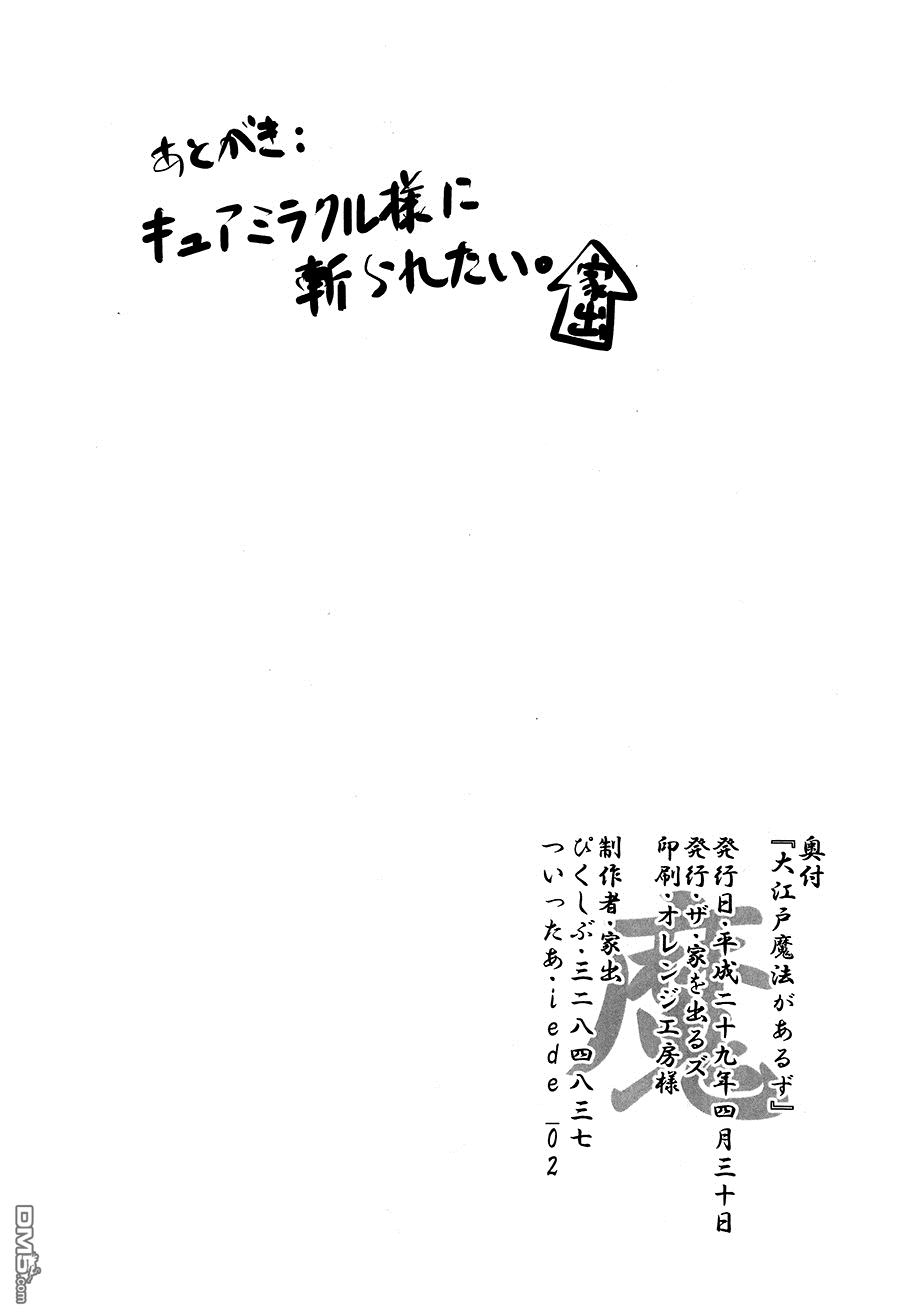 あとがき：
キュアミラクル様に
斬られたい。
家出
奥付
『大江戸魔法があるず』
発行日・平成二十九年四月三十日
発行・ザ・家を出るズ
印刷・オレンジ工房様
制作者・家出
ぴくしぶ・三二八四八三七
ついったあ・iede_02
魔
DM5.com